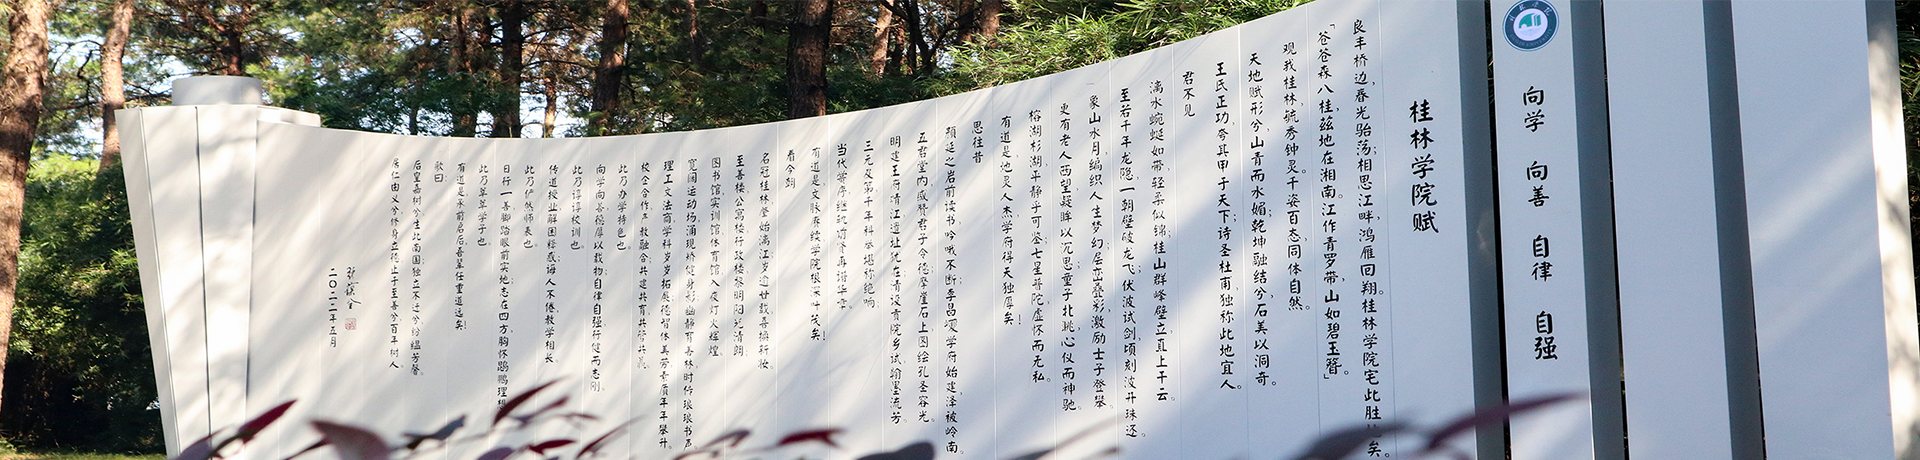 向学 向善 自律 自强
桂林学院赋
良丰桥边,春光骀荡;相思江畔,鸿雁回翔。桂林学院宅此胜地矣。
「苍苍森八桂,兹地在湘南。江作青罗带,山如碧玉篸。」
观我桂林,毓秀钟灵。千姿百态,同体自然。
天地赋形兮,山青而水媚;乾坤融结兮,石美以洞奇。
王氏正功,夸其甲于天下;诗圣杜甫,独称此地宜人。
君不见
漓水蜿蜒如带,轻柔似锦;桂山群峰壁立,直上干云。
至若千年龙隐,一朝壁破龙飞;伏波试剑,顷刻波升珠还。
象山水月,编织人生梦幻;层峦叠彩,激励士子登攀。
更有老人西望,凝眸以沉思;童子北眺,心仪而神驰。
榕湖杉湖,平静乎可鉴;七星普陀,虚怀而无私。
有道是地灵人杰,学府得天独厚矣!
思往昔
颜延之岩前读书,吟哦不断;李昌巙学府始建,泽被岭南。
五君堂内咸赞君子令德,摩崖石上图绘孔圣容光。
明建王府,靖江遗址犹在;清设贡院,乡试翰墨流芳。
三元及第,千年科举堪称绝响;
当代学序,继砚前修再谱华章。
有道是文脉赓续,学院根深叶茂矣!
看今朝
名冠桂林,肇始漓江;岁逾廿载,喜换新妆。
至善楼、公寓楼、行政楼,黎明阳光清朗;
图书馆、实训馆、体育馆,入夜灯火辉煌。
宽阔运动场,涌现矫健身影;幽静育善林,时传琅琅书声。
理工文法商,学科岁岁拓展;德智体美劳,素质年年攀升。
校企合作,产教融合;共建共育,共管共
此乃办学特色也。
向学向善,德厚以载物;自律自强,行健而志刚。
此乃谆谆校训也。
传道授业解困释惑,诲人不倦,教学相长。
此乃 师表也。
日行一善,脚踏眼前实地;志在四方,胸怀鹍鹏理想
此乃莘莘学子也。
有道是承前启后,吾辈任重道远矣!
歌曰:
后皇嘉树兮生此南国,独立不迁兮纷缊芳馨。
居仁由义兮修身立德,止于至善兮百年树人。
二〇二一年五月